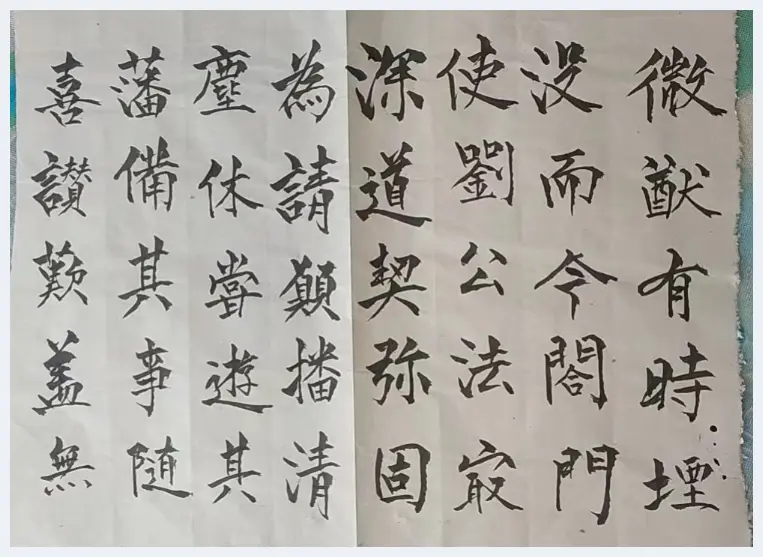 微猷有時堙
没而今閤門
使劉公法㝡
深道契弥固
為請願播清
塵休嘗遊其
藩備其事隨
喜讚歎盖無